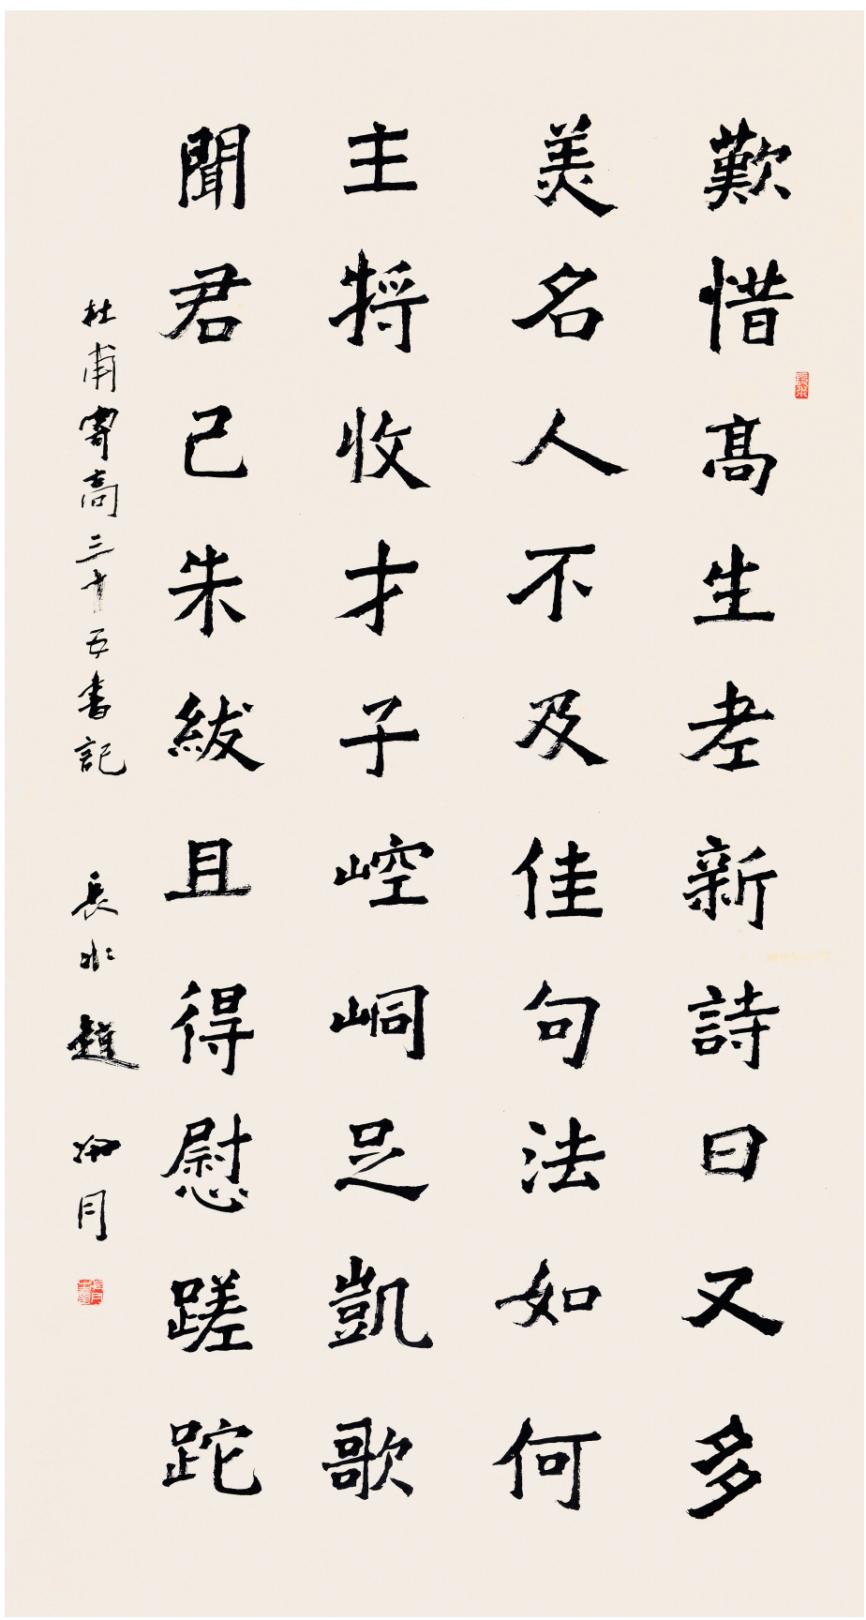 歎惜髙生老新詩日又多
美名人不及佳句法如何
主將收才子崆峒足凱歌
聞君已朱紱且得慰蹉跎
杜甫寄高三十五書記 長水趙冷月